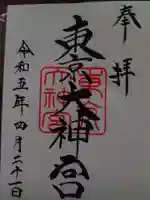 奉拝
東京大神宮
東京大神宮
令和五年四月二十一日